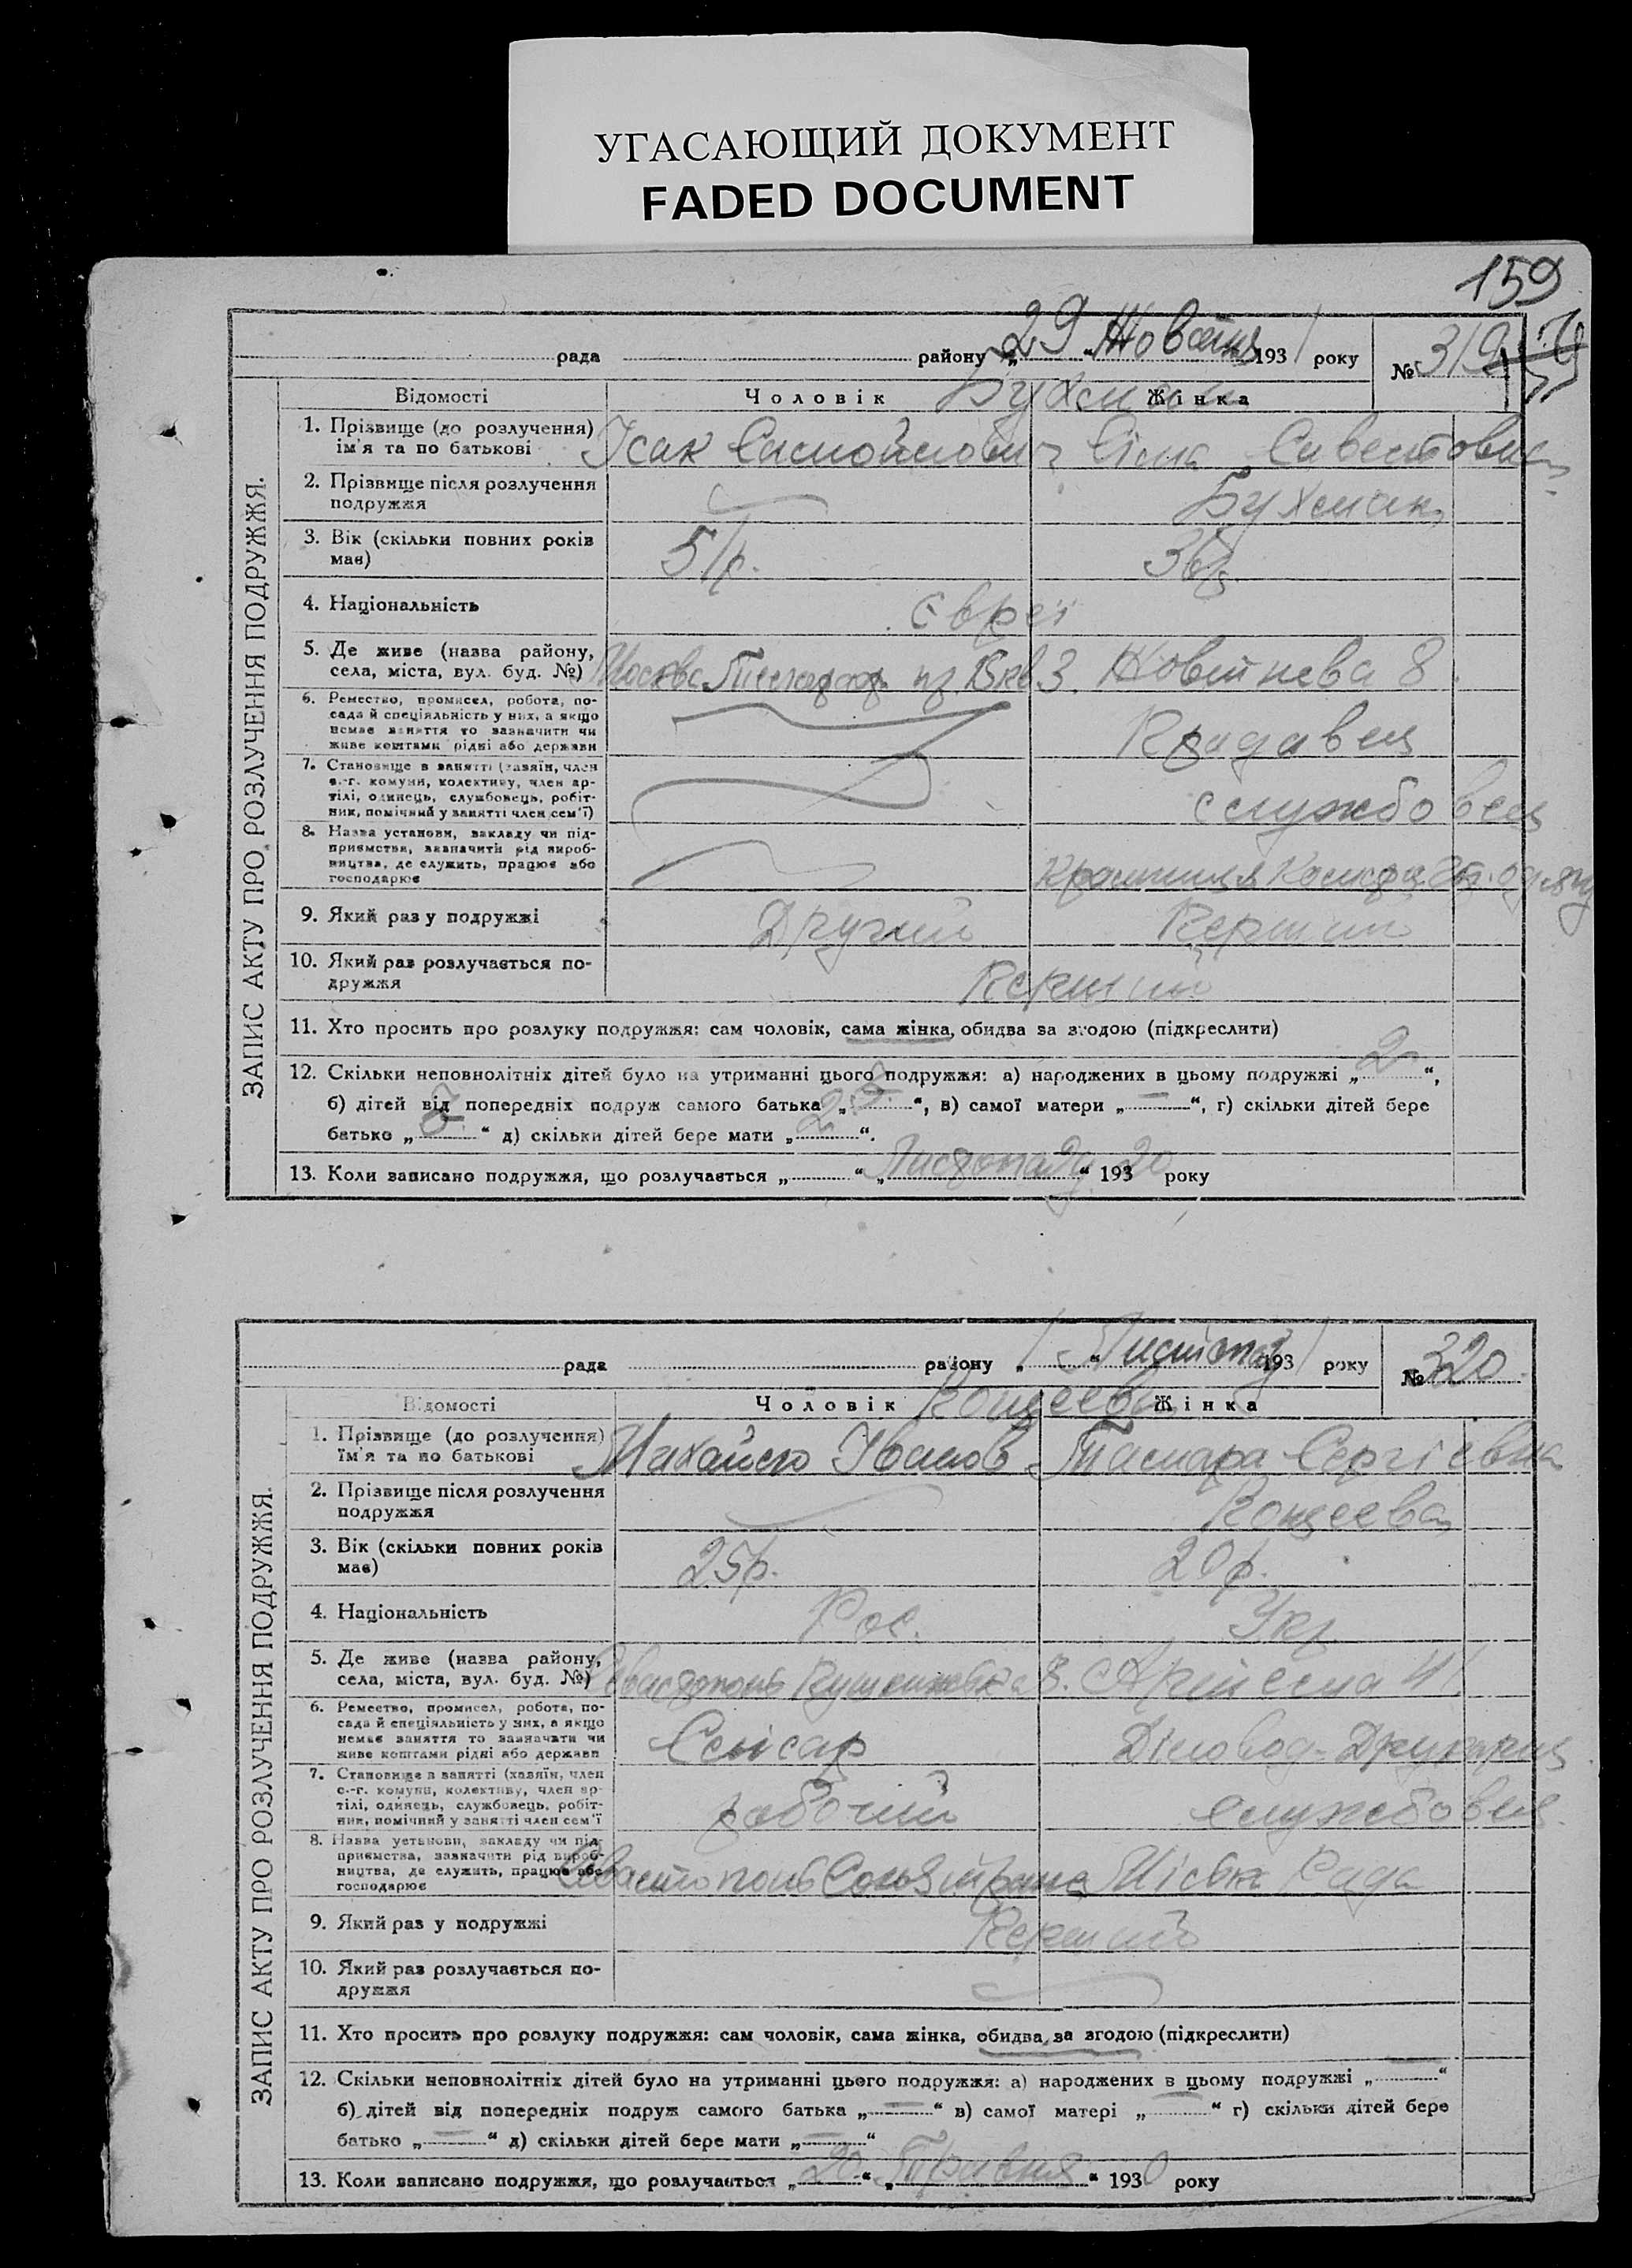 УГАСАЮЩИЙ ДОКУМЕНТ
FADED DOCUMENT
159
рада району „29 “ Жовтня 1931 року № 319
ЗАПИС АКТУ ПРО РОЗЛУЧЕННЯ ПОДРУЖЖЯ.
Відомості Чоловік Жінка
Бухман
1. Прізвище (до розлучення) ім'я та по батькові Ісак Соломонович Сіма
2. Прізвище після розлучення подружжя Бухман
3. Вік (скільки повних років має) 51 р. 36 р.
4. Національність євреї
5. Де живе (назва району, села, міста, вул. буд. №) Москва кв. 3. Жовтнева 8.
6. Ремество, промисел, робота, посада й спеціяльність у них, а якщо немає заняття то зазначити чи живе коштами рідні або держави Продавець
7. Становище в занятті (хазяїн, член с.-г. комуни, колективу, член артілі, одинець, службовець, робітник, помічний у занятті член сем'ї) службовець
8. Назва установи, закладу чи підприємства, зазначити рід виробництва, де служить, працює або господарює Крамниця
9. Який раз у подружжі Другий Перший
10. Який раз розлучається подружжя Перший
11. Хто просить про розлуку подружжя: сам чоловік, сама жінка, обидва за згодою (підкреслити)
12. Скільки неповнолітніх дітей було на утриманні цього подружжя: а) народжених в цьому подружжі „ 2 “,
б) дітей від попередніх подруж самого батька „ “, в) самої матери „ — “, г) скільки дітей бере
батько „ “ д) скільки дітей бере мати „ 2 “.
13. Коли записано подружжя, що розлучається „ “ „ Листопада “ 193 20 року
рада району „ 1 “ Листопад 1931 року № 320
ЗАПИС АКТУ ПРО РОЗЛУЧЕННЯ ПОДРУЖЖЯ.
Відомості Чоловік Жінка
Кощеєва
1. Прізвище (до розлучення) їм'я та по батькові Михайло Іванов. Тамара Сергієвна
2. Прізвище після розлучення подружжя Кощеєва
3. Вік (скільки повних років має) 25 р. 20 р.
4. Національність Рос. Укр.
5. Де живе (назва району, села, міста, вул. буд. №) Севастополь 8. Артема
6. Ремество, промисел, робота, посада й спеціяльність у них, а якщо немає заняття то зазначати чи живе коштами рідні або держави Слюсар Діловод-Друкарка
7. Становище в занятті (хазяїн, член с.-г. комуни, колективу, член артілі, одинець, службовець, робітник, помічний у занятті член сем'ї робочий службовець
8. Назва установи, закладу чи підприємства, зазначити рід виробництва, де служить, працює або господарює Севастополь Міська Рада
9. Який раз у подружжі Перший
10. Який раз розлучається подружжя
11. Хто просить про розлуку подружжя: сам чоловік, сама жінка, обидва за згодою (підкреслити)
12. Скільки неповнолітніх дітей було на утриманні цього подружжя: а) народжених в цьому подружжі „ — “
б) дітей від попередніх подруж самого батька „ — “ в) самої матері „ — “ г) скільки дітей бере
батько „ — “ д) скільки дітей бере мати „ — “
13. Коли записано подружжя, що розлучається „ 20 “ „ Травня “ 1930 року